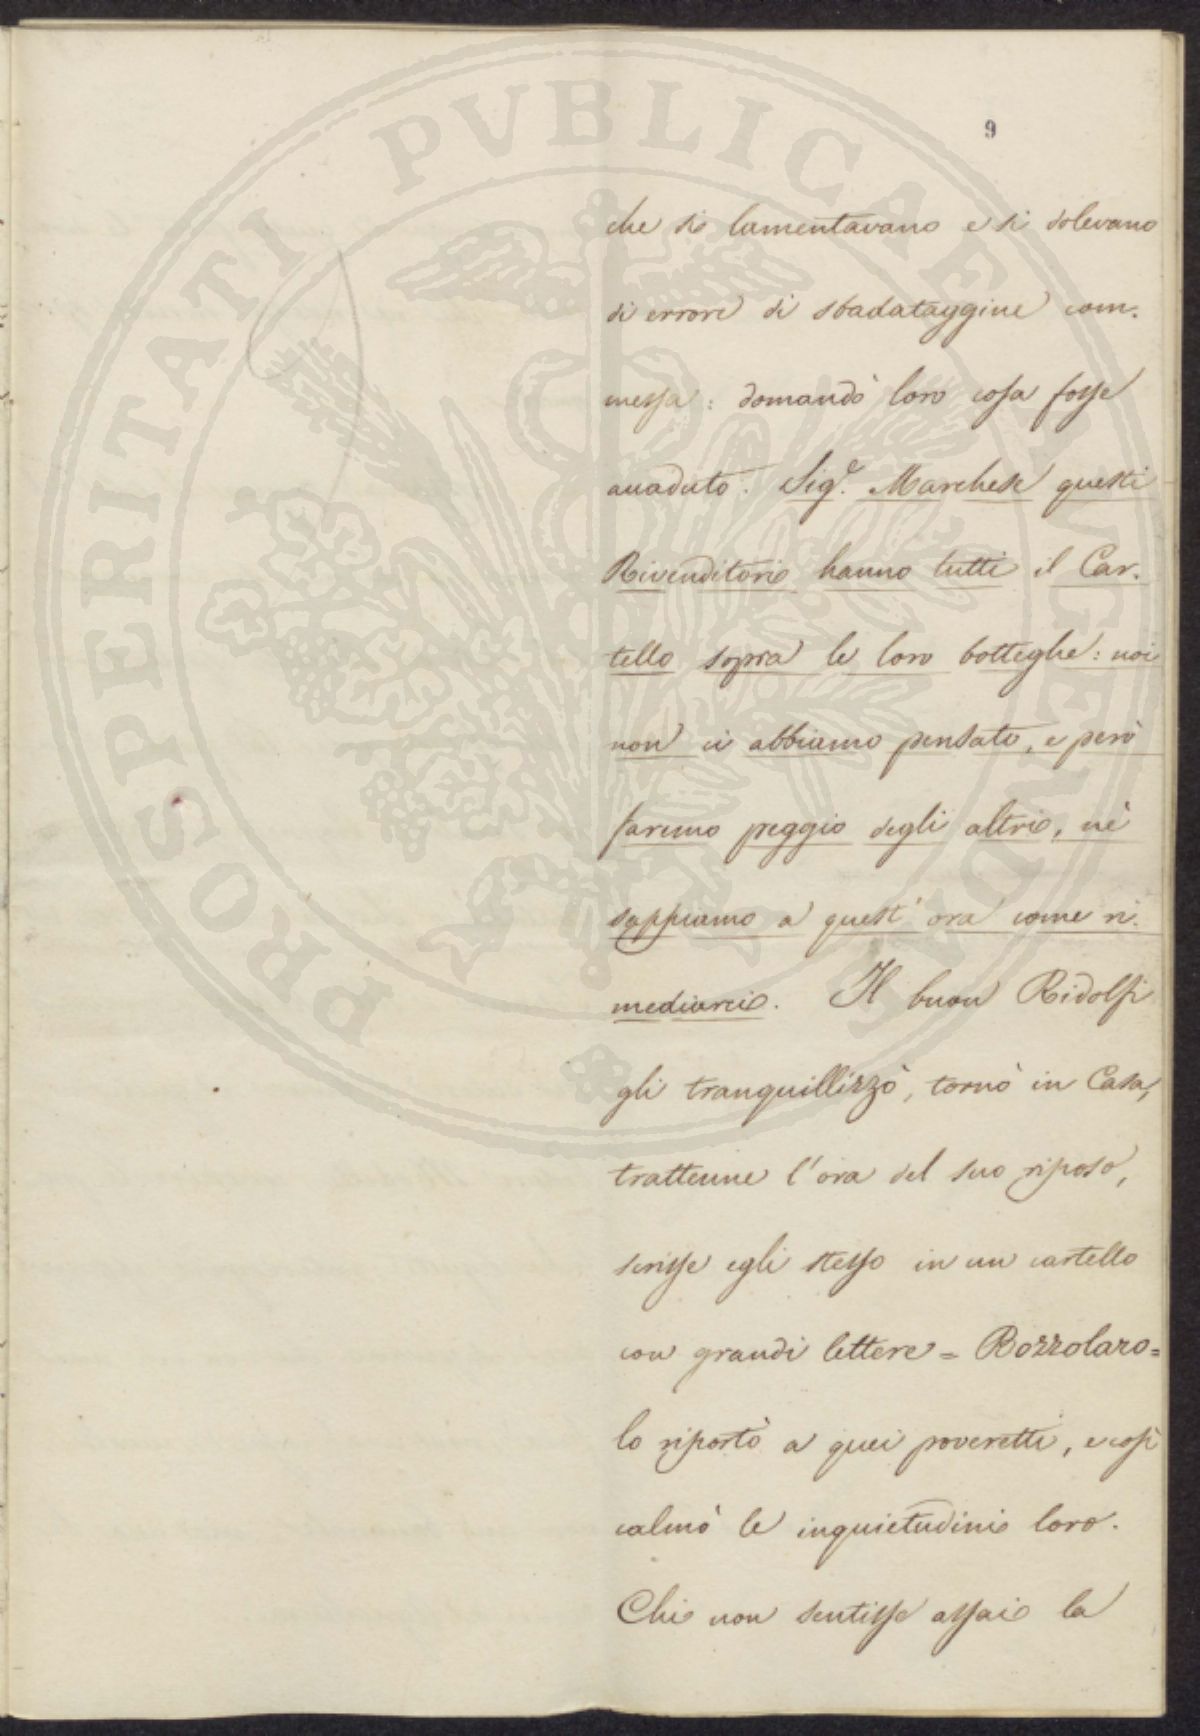 PROSPERITATI PVBLICAE AVGENDAE
9
che si lamentavano e si dolevano
di errore di sbadataggine com-
messa: domandò loro cosa fosse
accaduto. Sig.e Marchese questi
Rivenditori hanno tutti il Car-
tello sopra le loro botteghe: noi
non ci abbiamo pensato, e però
faremo peggio degli altri, nè
sappiamo a quest' ora come ri-
mediarci. Il buon Ridolfi
gli tranquillizzò, tornò in Casa,
trattenne l'ora del suo riposo,
scrisse egli stesso in un cartello
con grandi lettere = Bozzolaro =
lo riportò a quei poveretti, e così
calmò le inquietudini loro.
Chi non sentisse assai la